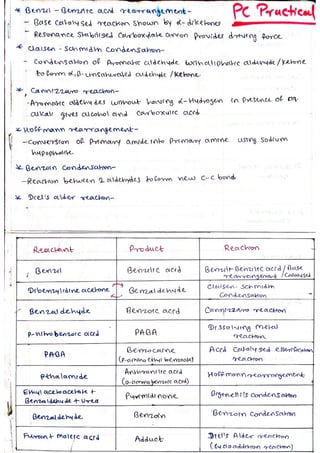 PC Practical
* Benzil - Benzilic acid rearrangement-
- Base Catalysed reaction shown by α-diketones
- Resonance Stabilised Carboxylate anion provides driving force
* Claisen - Schmidth Condensation-
- Condensation of Aromatic aldehyde with aliphatic aldehyde/ketone
to form α,β-unsaturated aldehyde/ketone
* Cannizzaro reaction-
- Aromatic aldehydes without having α-Hydrogen in Presence of aq
alkali gives alcohol and Carboxylic acid
* Hoffmann rearrangement-
- Conversion of Primary amide into Primary amine using Sodium
* Benzoin Condensation-
- Reaction between 2 aldehydes to form new C-C bond
* Diel's alder reaction-
Reactant Product Reaction
Benzil Benzilic acid Benzil-Benzilic acid / Base
rearrangement
Dibenzylidine acetone Benzaldehyde Claisen-Schmidth
Condensation
Benzaldehyde Benzoic acid Cannizzaro reaction
P-nitrobenzoic acid PABA Dissolving metal
reaction
PABA Benzocaine Acid Catalysed esterification
(P-amino ethyl benzoate) reaction
Phthalamide Anthranilic acid Hoffmann rearrangement
(o-aminobenzoic acid)
Ethyl acetoacetate +
Benzaldehyde + Urea Pyrimidinone Biginelli's Condensation
Benzaldehyde Benzoin Benzoin Condensation
Furan + maleic acid Adduct Diel's Alder reaction
(cycloaddition reaction)